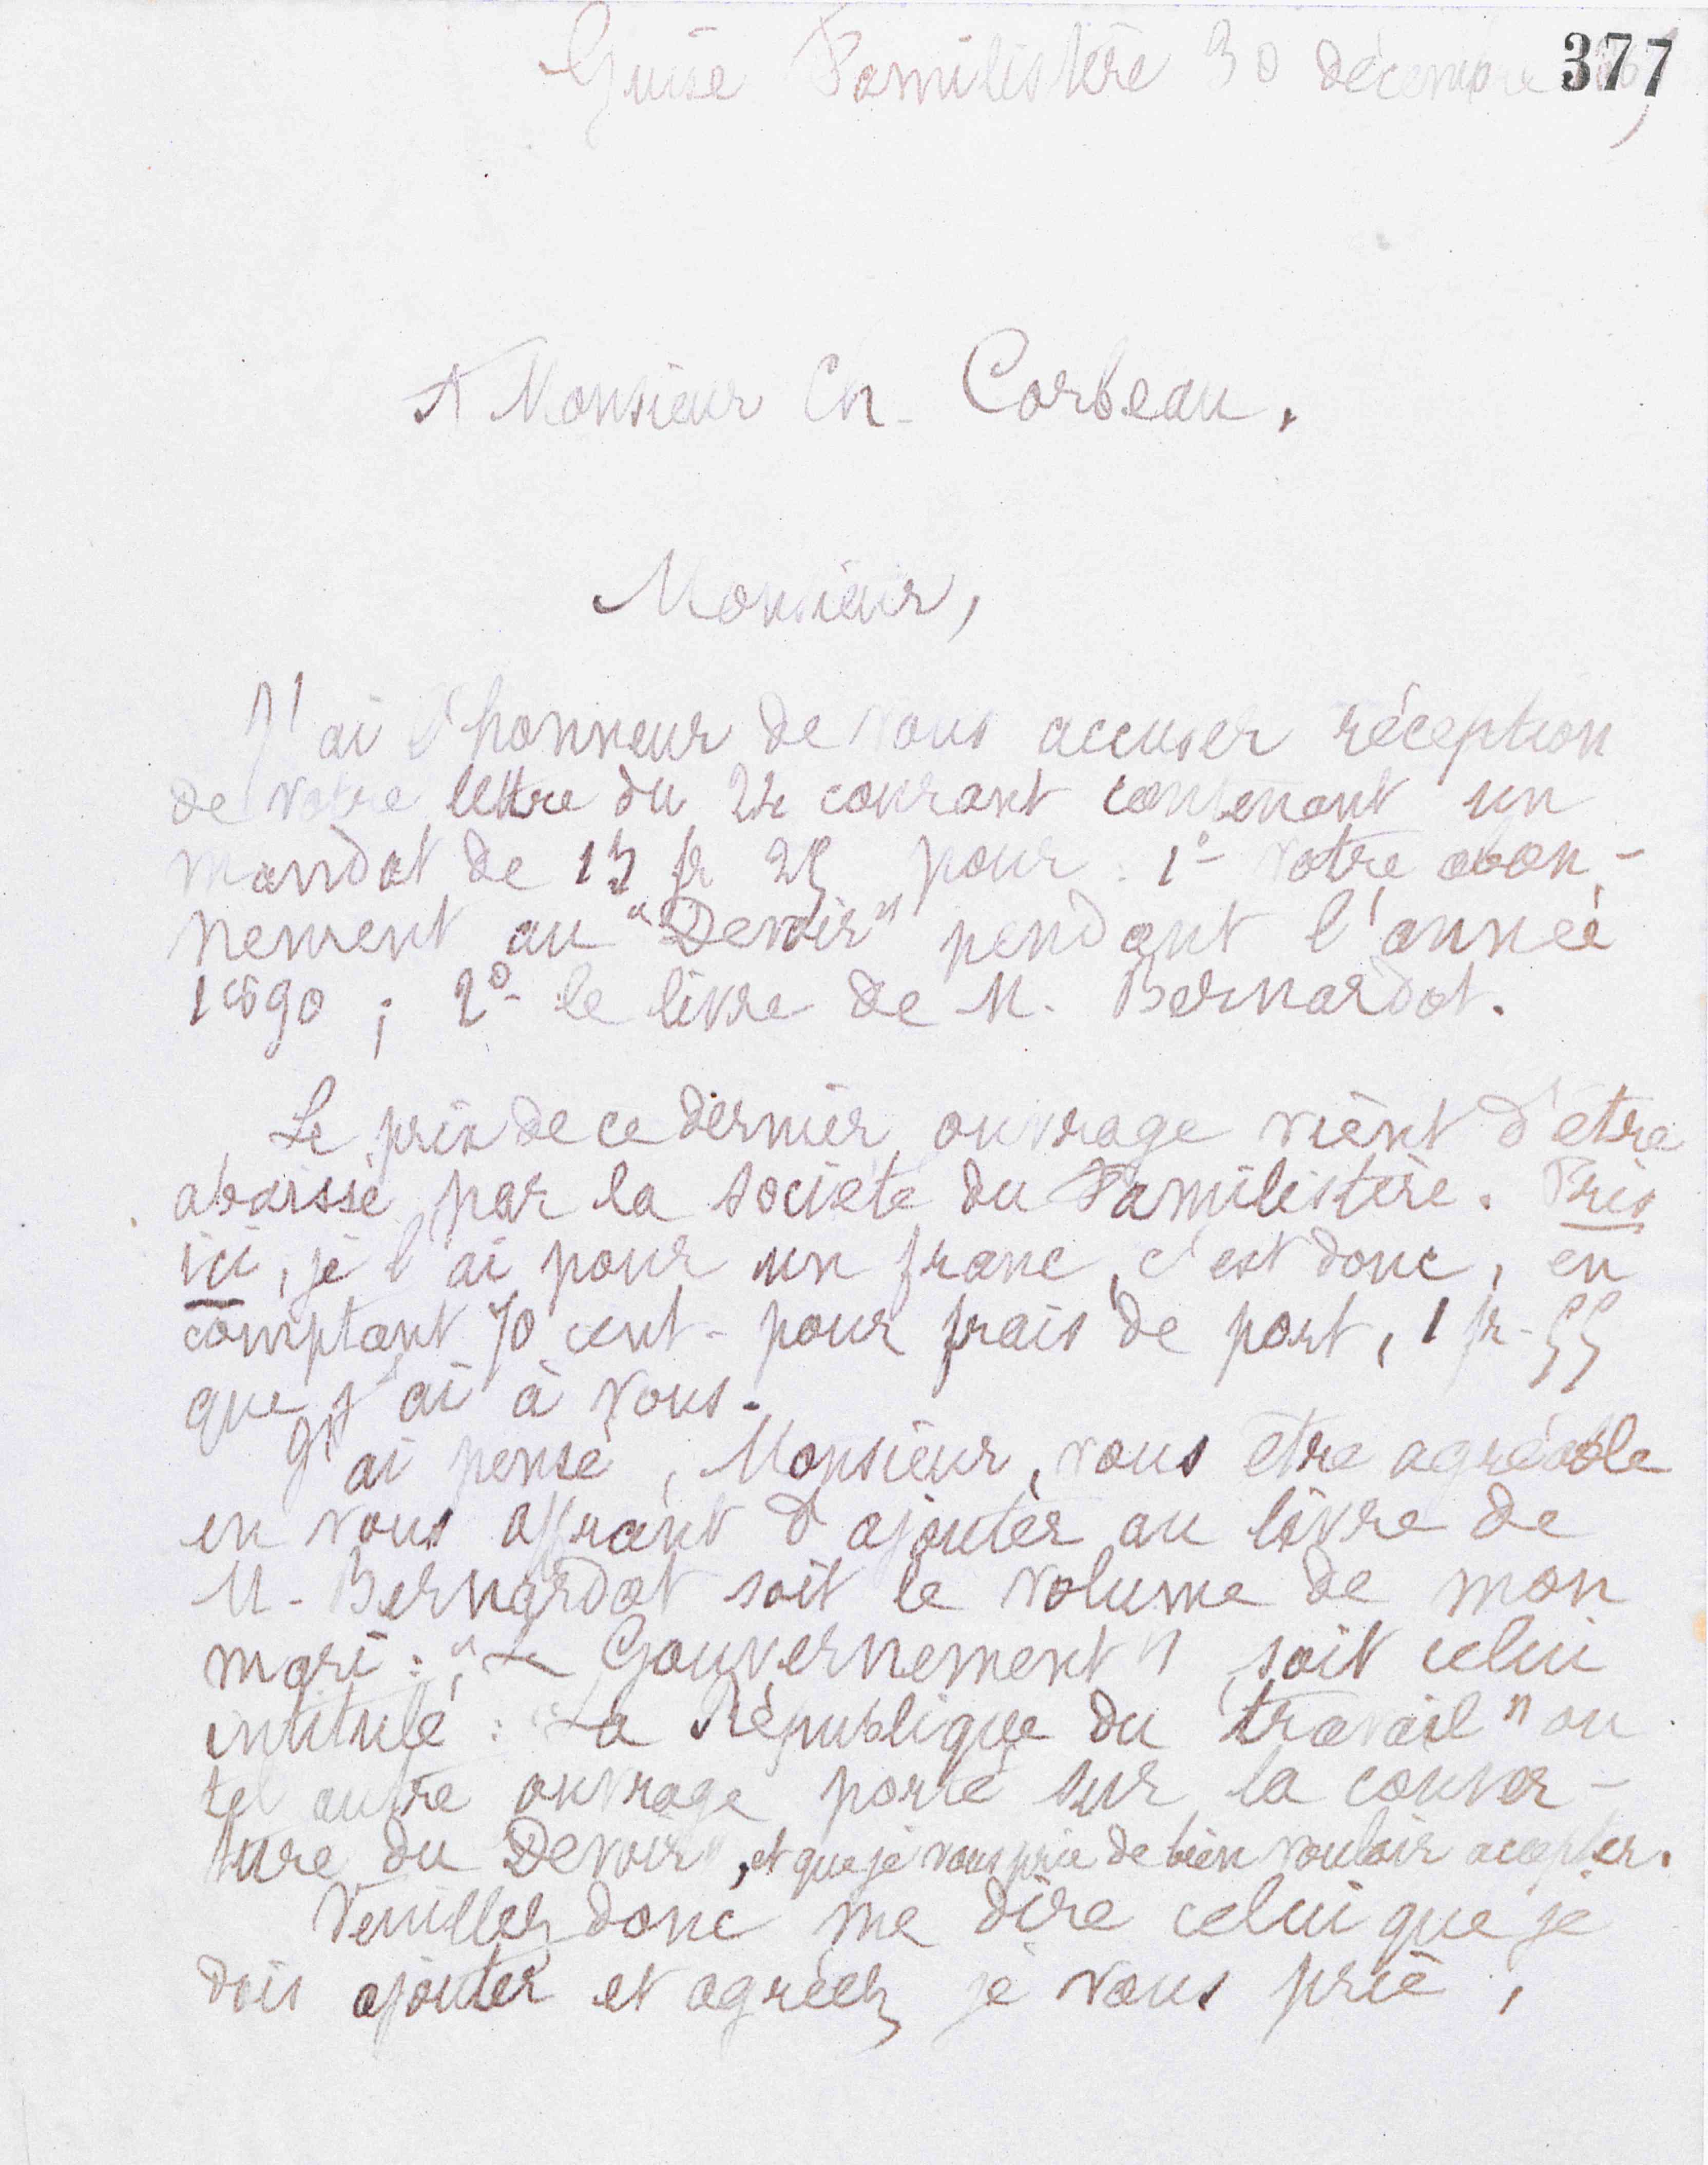 377
Guise Familistère 30 décembre
A Monsieur Ch. Corbeau.
Monsieur,
J'ai l'honneur de vous accuser réception
de votre lettre du 24 courant contenant un
mandat de 13 fr 25 pour : 1º votre abon-
nement au "Devoir" pendant l'année
1890 ; 2º le livre de M. Bernardot.
Le prix de ce dernier ouvrage vient d'être
abaissé par la société du Familistère. Pris
ici, je l'ai pour un franc, c'est donc, en
comptant 70 cent. pour frais de port, 1 fr. 55
que j'ai à vous.
J'ai pensé, Monsieur, vous être agréable
en vous offrant d'ajouter au livre de
M. Bernardot soit le volume de mon
mari : "Le Gouvernement" soit celui
intitulé : "La République du travail" ou
tel autre ouvrage porté sur la couver-
ture du Devoir", et que je vous prie de bien vouloir accepter.
Veuillez donc me dire celui que je
dois ajouter et agréez je vous prie,